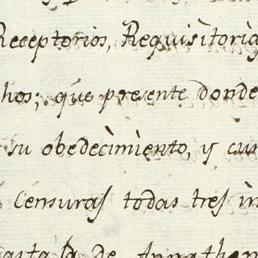 Receptorios, Requisitoria
hos; que presente donde
su obedecimiento, y cum
Censuras todas tres in
de Annathem